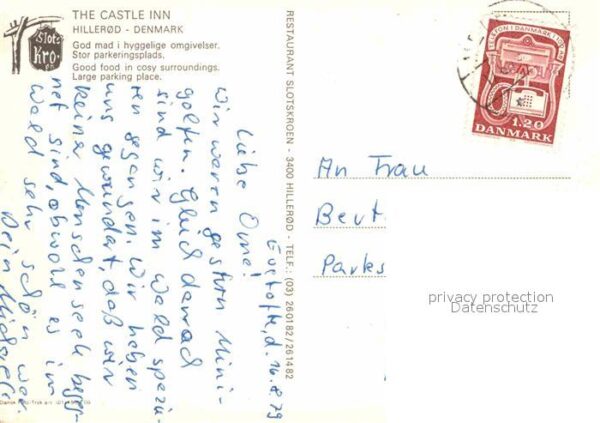 THE CASTLE INN
HILLERØD - DENMARK
God mad i hyggelige omgivelser.
Stor parkeringsplads.
Good food in cosy surroundings.
Large parking place.
Slots
Kro
RESTAURANT SLOTSKROEN - 3400 HILLERØD - TELF.: (03) 260182/261482
d. 16.8.79
Liebe Oma!
Wir waren gestern Mini-
golfen. Gleich danach
sind wir im Wald spazie-
ren gegangen. Wir haben
uns gewundert, daß wir
keiner Menschenseele begeg-
net sind, obwohl es im
Wald sehr schön war.
Dein
TELEFON I DANMARK I 100 ÅR
1.20
DANMARK
An Frau
Beut
Parks
privacy protection
Datenschutz